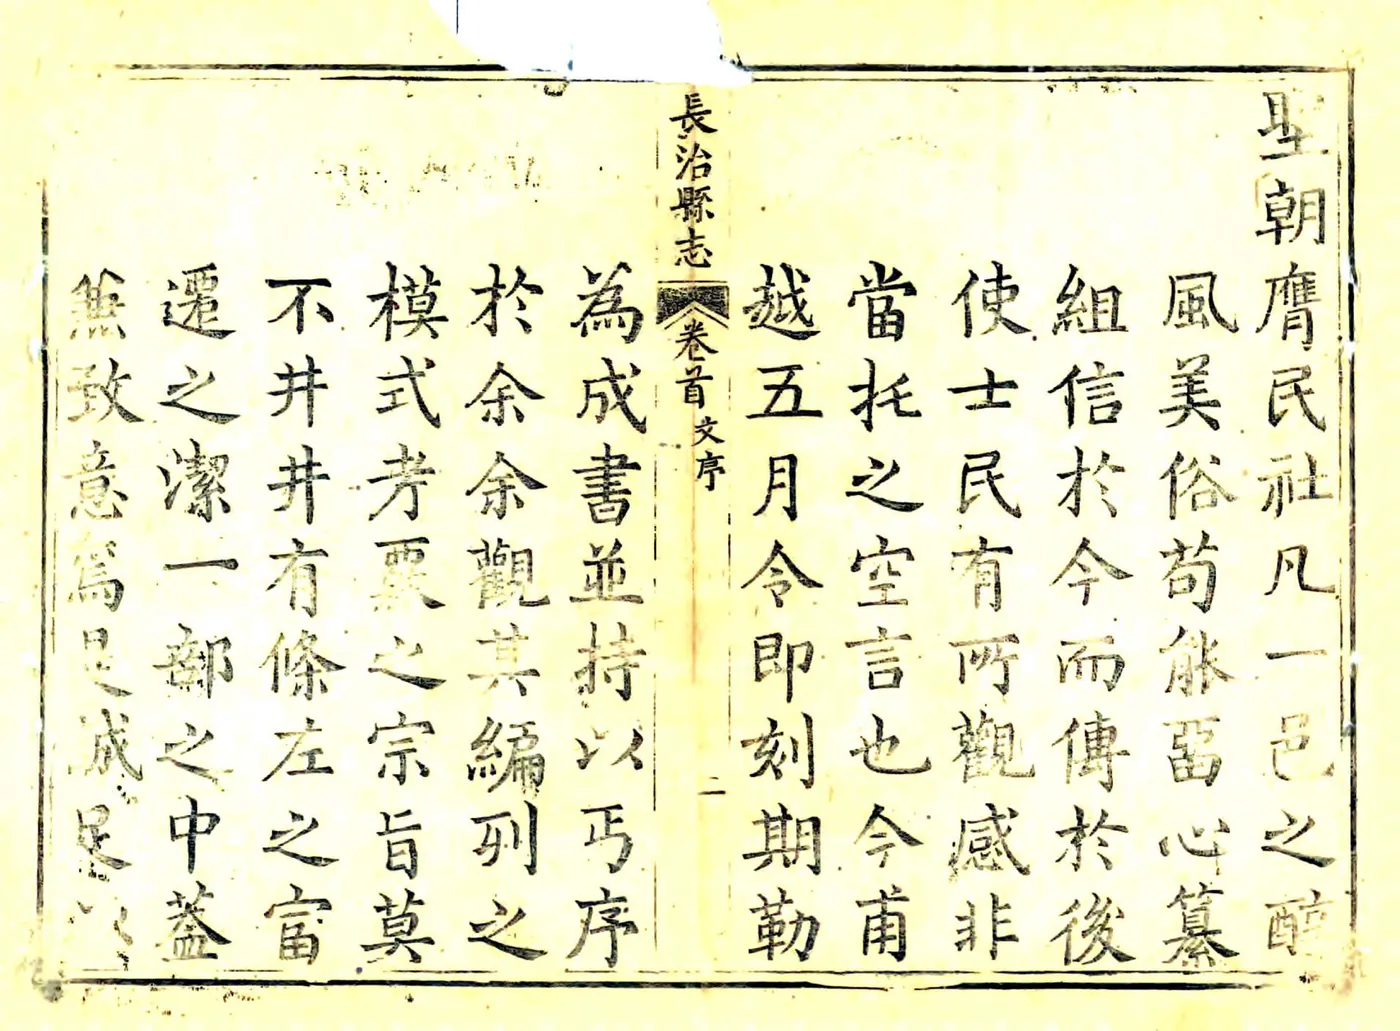 聖朝膺民社凡一邑之醇
風美俗苟能留心纂
組信於今而傳於後
使士民有所觀感非
當托之空言也今甫
越五月令即刻期勒
長治縣志
卷首
文序
二
為成書並持以丐序
於余余觀其編列之
模式考覈之宗旨莫
不井井有條左之富
遷之潔一部之中蓋
無致意焉是誠足以